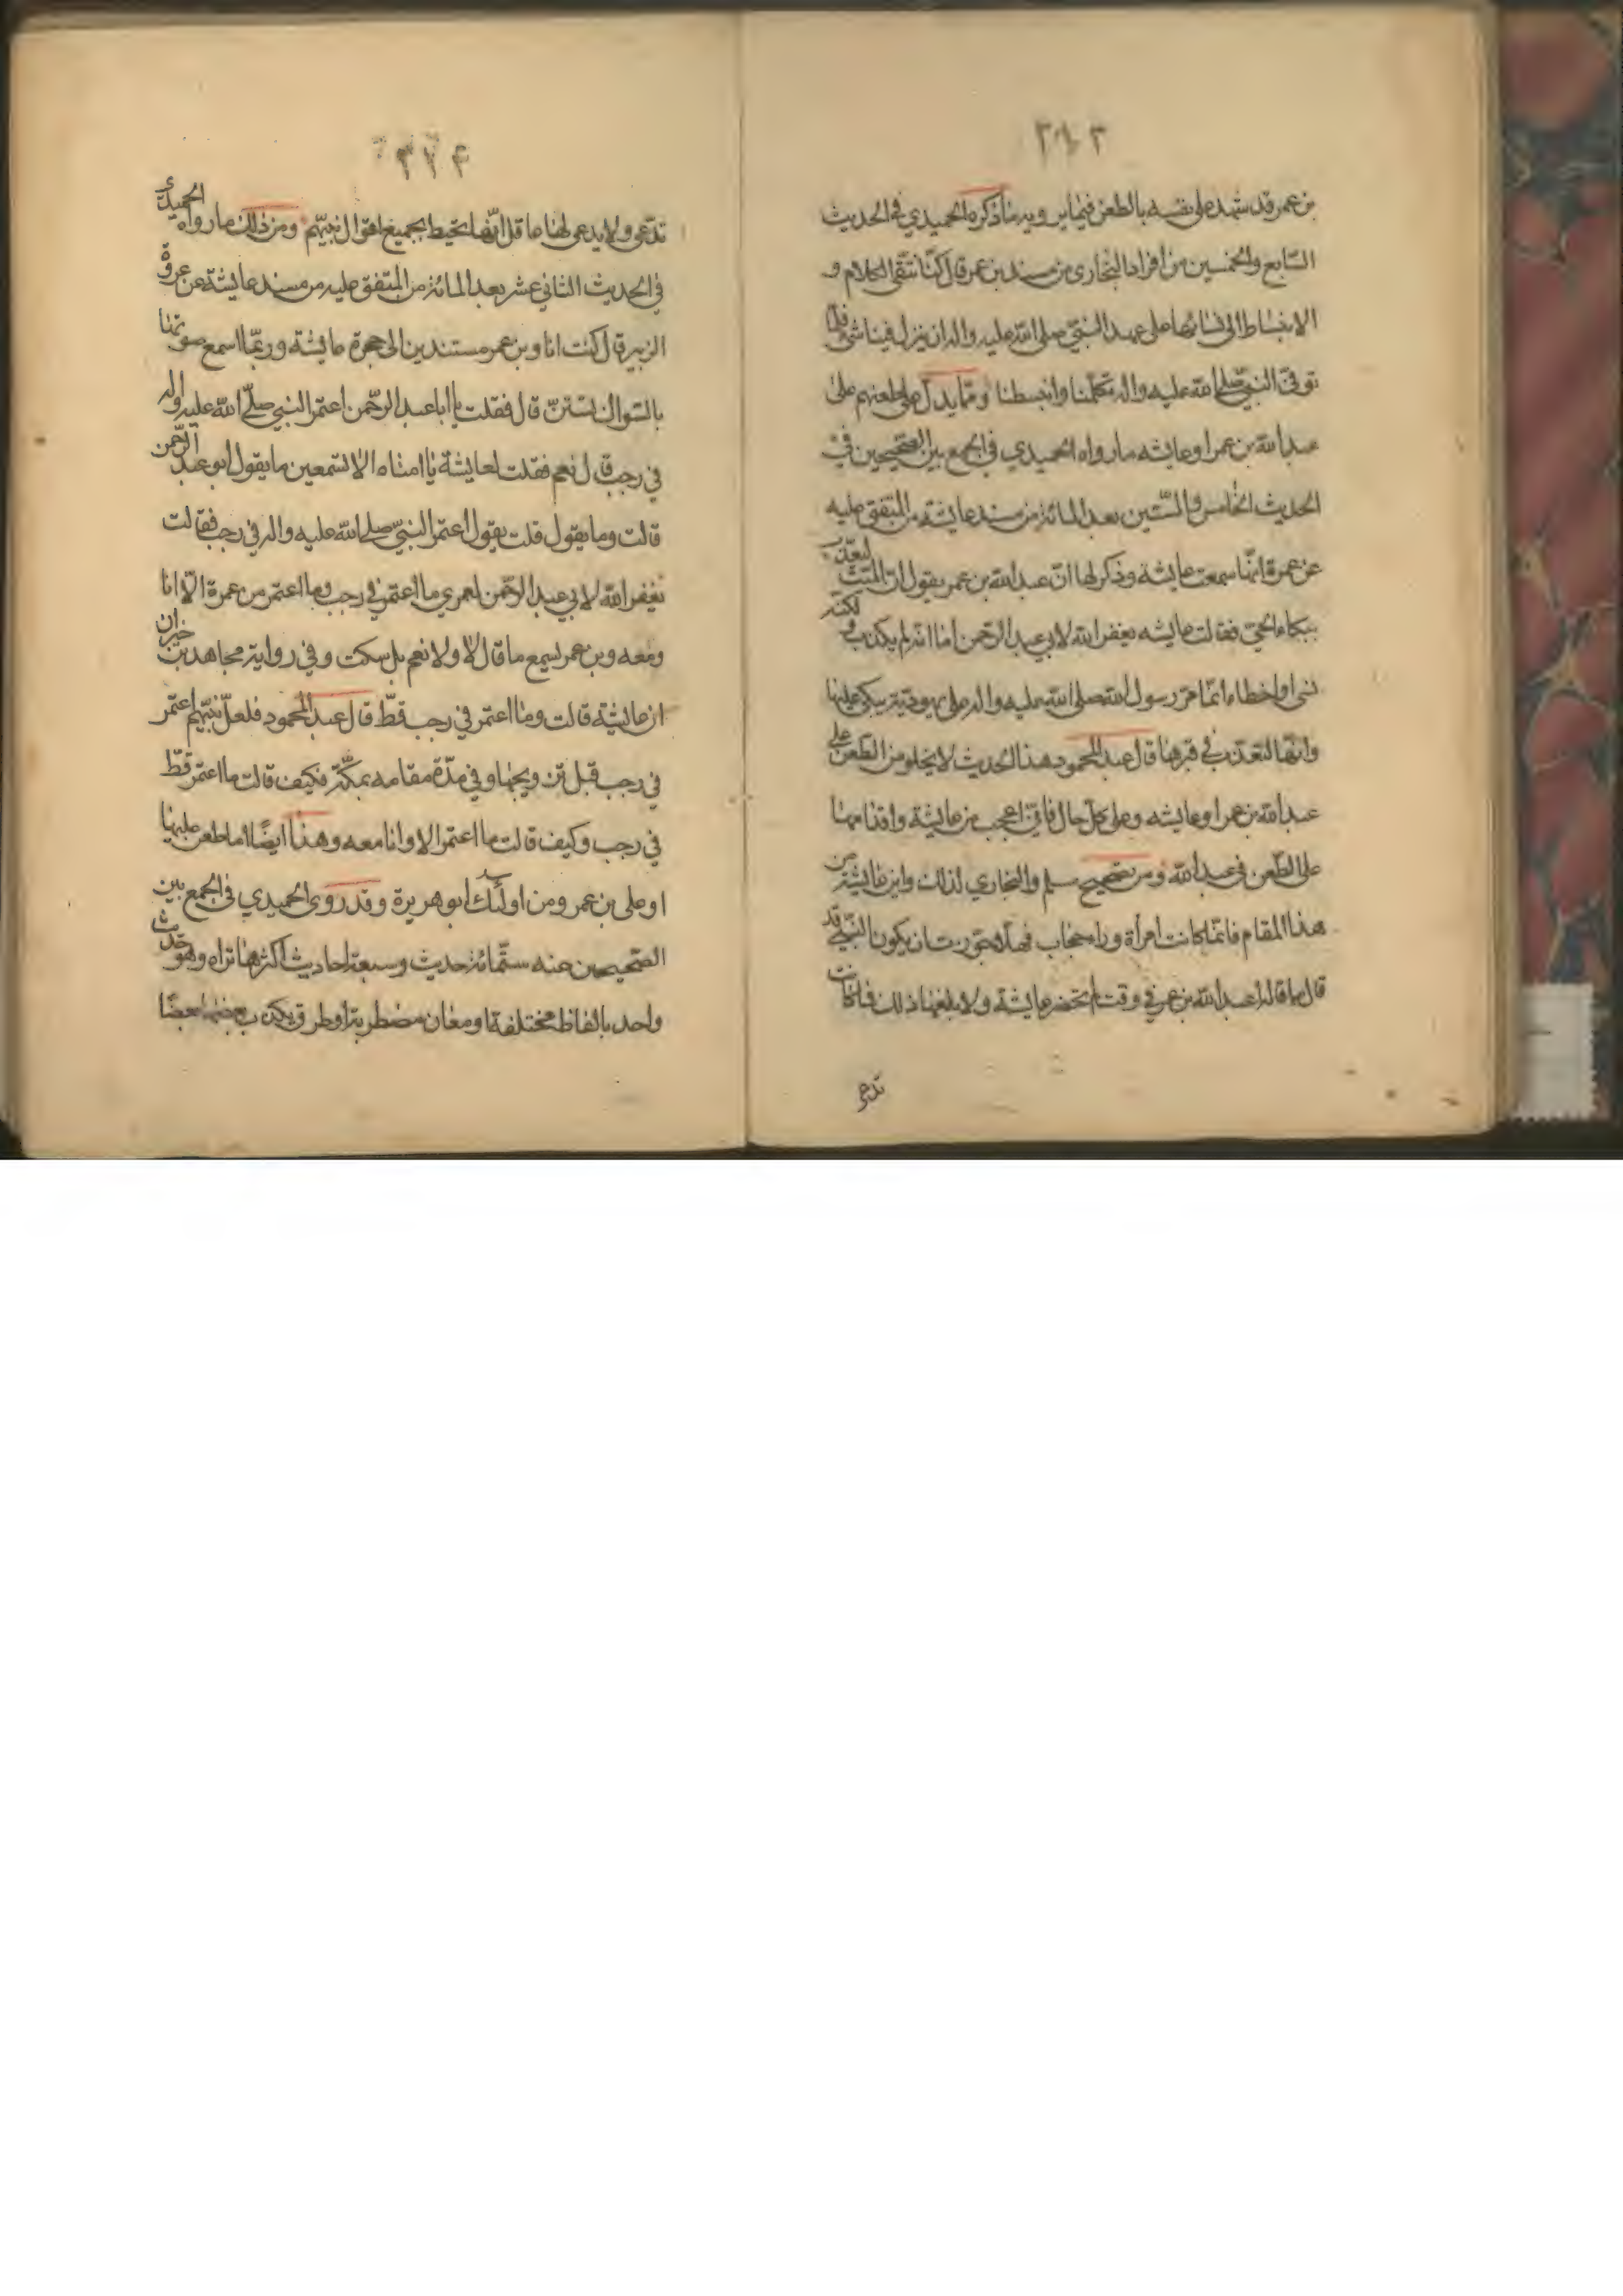 بن عمر قد شهد على نفسه بالطعن فيما يرويه ما ذكره الحميدي في الحديث
السّابع والخمسين من افراد البخاري من مسند بن عمر قال كنّا نتّقى الكلام و
الانبساط الى نسائنا على عهد النبيّ صلى الله عليه واله ان ينزل فينا شئ فلمّا
توفىّ النبيّ صلى الله عليه واله تكلّمنا وانبسطنا وممّا يدلّ على طعنهم على
عبد الله بن عمر او عايشه ما رواه الحميدي في الجمع بين الصّحيحين في
الحديث الخامس والستّين بعد المائة من مسند عايشة من المتّفق عليه
عن عمرة انّها سمعت عايشة وذكر لها انّ عبد الله بن عمر يقول انّ الميّت ليعذّب
ببكاء الحيّ فقالت عايشه يغفر الله لابي عبد الرّحمن امّا انّه لم يكذب ولكنّه
نسى او اخطاء انّما مرّ رسول الله صلى الله عليه واله على يهوديّة يبكى عليها
وانّها لتعذّب في قبرها قال عبد المحمود هذا الحديث لا يخلو من الطّعن على
عبد الله بن عمر او عايشه وعلى كلّ حال فانّي اعجب من عايشة واقدامها
على الطّعن في عبد الله ومن تصحيح مسلم والبخاري لذلك واين عايشة من
هذا المقام فانّما كانت امرأة وراء حجاب فهلّا جوّزت ان يكون النبيّ قد
قال ما قاله عبد الله بن عمر في وقت لم تحضر عايشة ولا بلغها ذلك فان كانت
تدعى
تدّعى ولا يدعى لها عاقل انّها تحيط بجميع اقوال نبيّهم ومن ذلك ما رواه الحميدي
في الحديث الثاني عشر بعد المائة من المتّفق عليه من مسند عايشة عن عروة
الزبير قال كنت انا وبن عمر مستندين الى حجرة عايشة وربّما اسمع صوتها
بالسّواك تستنّ قال فقلت يا ابا عبد الرّحمن اعتمر النبي صلّى الله عليه واله
في رجب قال نعم فقلت لعايشة يا امتاه الا تسمعين ما يقول ابو عبد الرّحمن
قالت وما يقول قلت يقول اعتمر النبيّ صلى الله عليه واله في رجب فقالت
يغفر الله لابي عبد الرّحمن لعمري ما اعتمر في رجب وما اعتمر من عمرة الّا انا
ومعه وبن عمر يسمع ما قال لا ولا نعم بل سكت وفي رواية مجاهد بن خبران
ان عايشة قالت وما اعتمر في رجب قطّ قال عبد المحمود فلعلّ نبيّهم اعتمر
في رجب قبل تزويجها وفي مدّة مقامه بمكّة فكيف قالت ما اعتمر قطّ
في رجب وكيف قالت ما اعتمر الا وانا معه وهذا ايضًا اما طعن عليها
او على بن عمر ومن اولئك ابو هريرة وقد روى الحميدي في الجمع بين
الصّحيحين عنه ستّمائة حديث وسبعة احاديث اكثرها تراه وهو حديث
واحد بالفاظ مختلفة او معان مضطربة او طرق يكذب بعضها بعضًا